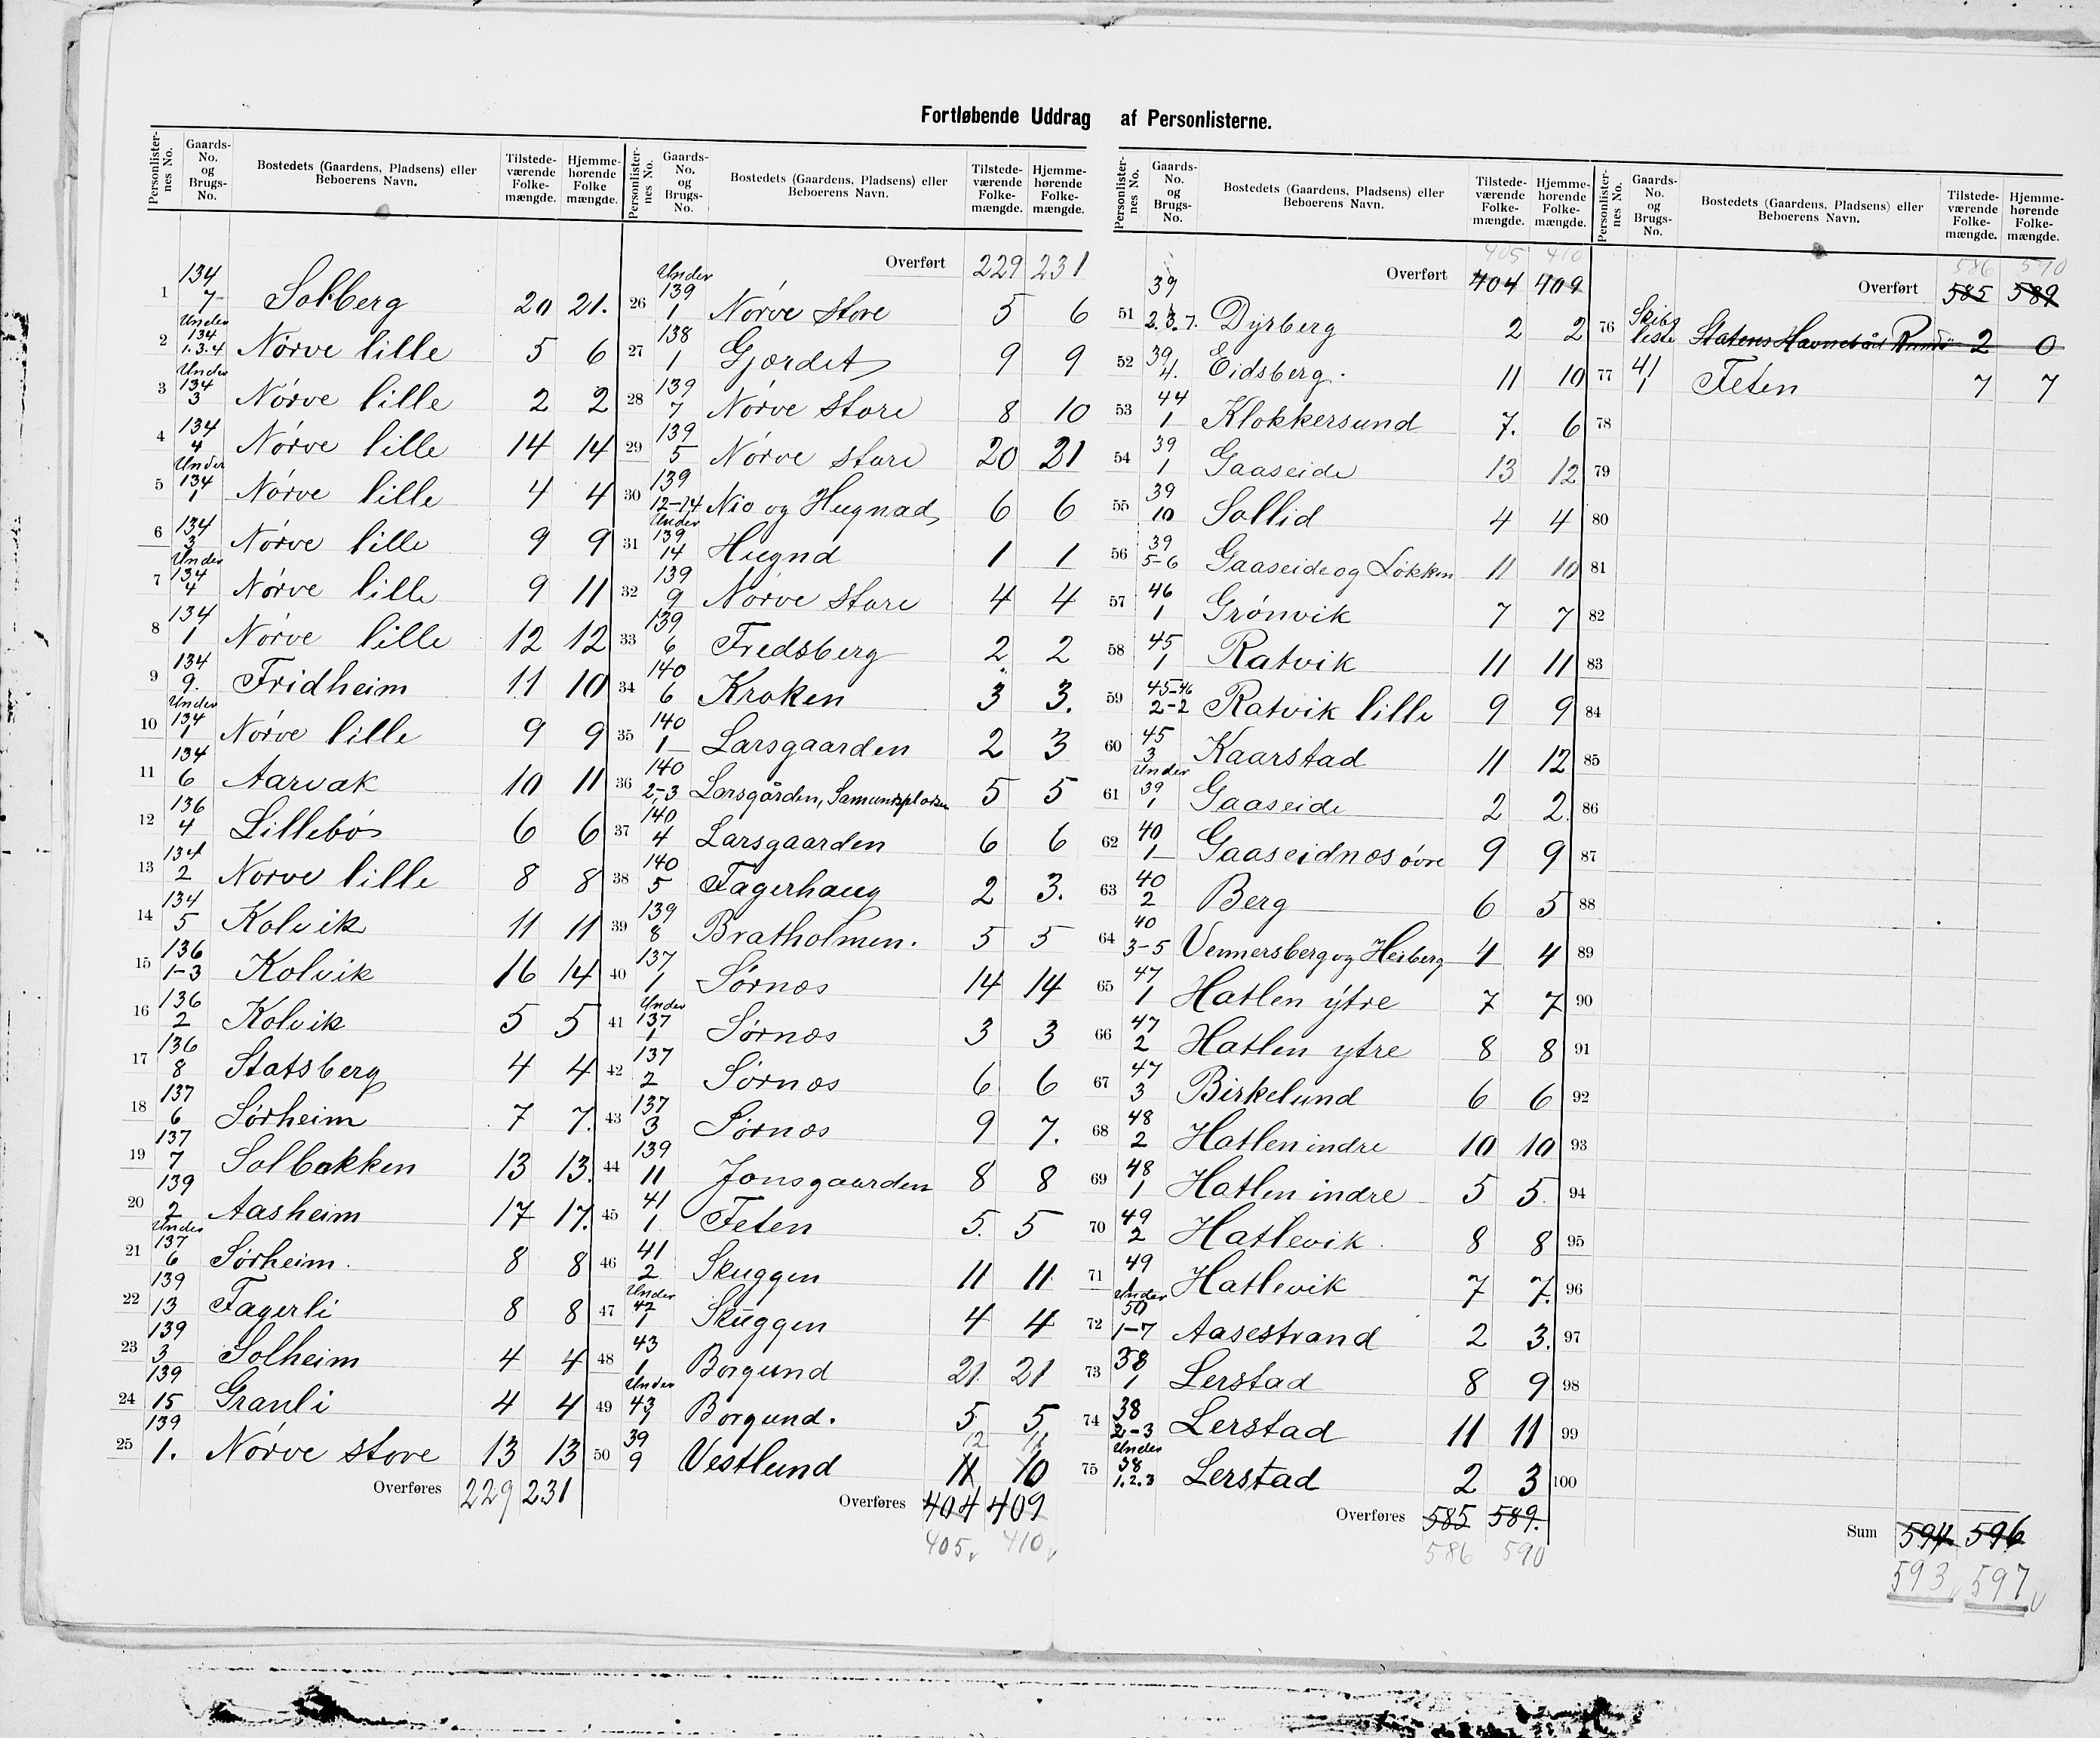 Fortløbende Uddrag af Personlisterne.
Personlister-nes No. Gaards-No. og Brugs-No. Bostedets (Gaardens, Pladsens) eller Beboerens Navn. Tilstede-værende Folke-mængde. Hjemme-hørende Folke mængde.
1 134 7 Solberg 20 21.
2 Under 134 1.3.4 Nørve lille 5 6
3 Under 134 3 Nørve lille 2 2
4 134 4 Nørve lille 14 14
5 Under 134 1 Nørve lille 4 4
6 134 3 Nørve lille 9 9
7 Under 134 4 Nørve lille 9 11
8 134 1 Nørve lille 12 12
9 134 9. Fridheim 11 10
10 Under 134 1 Nørve lille 9 9
11 134 6 Aarvak 10 11
12 136 4 Lillebø 6 6
13 134 2 Nørve lille 8 8
14 134 5 Kolvik 11 11
15 136 1-3 Kolvik 16 14
16 136 2 Kolvik 5 5
17 136 8 Statsberg 4 4
18 137 6 Sørheim 7 7.
19 137 7 Solbakken 13 13.
20 139 2 Aasheim 17 17.
21 Under 137 6 Sørheim. 8 8
22 139 13 Fagerli 8 8
23 139 3 Solheim 4 4
24 139 15 Granli 4 4
25 139 1. Nørve store 13 13
Overføres 229 231
Personlister-nes No. Gaards-No. og Brugs-No. Bostedets (Gaardens, Pladsens) eller Beboerens Navn. Tilstede-værende Folke-mængde. Hjemme-hørende Folke-mængde.
Overført 229 231
26 Under 139 1 Nørve store 5 6
27 138 1 Gjærdet 9 9
28 139 7 Nørve store 8 10
29 139 5 Nørve store 20 21
30 139 12-14 Nio og Hugnad 6 6
31 Under 139 14 Hugnd 1 1
32 139 9 Nørve store 4 4
33 139 6 Fredsberg 2 2
34 140 6 Kroken 3 3.
35 140 1 Larsgaarden 2 3
36 140 2-3 Larsgården, Samundsplassen 5 5
37 140 4 Larsgaarden 6 6
38 140 5 Fagerhaug 2 3.
39 139 8 Bratholmen. 5 5
40 137 1 Sørnæs 14 14
41 Under 137 1 Sørnæs 3 3
42 137 2 Sørnæs 6 6
43 137 3 Sørnæs 9 7.
44 139 11 Jonsgaarden 8 8
45 41 1 Feten 5. 5
46 41 2 Skuggen 11 11
47 Under 42 1 Skuggen 4 4
48 43 1 Borgund 21 21
49 Under 43 1 Borgund. 5 5
12 11
50 39 9 Vestlund 11 10
Overføres 404 409
405 410
Personlister-nes No. Gaards-No. og Brugs-No. Bostedets (Gaardens, Pladsens) eller Beboerens Navn. Tilstede-værende Folke-mængde. Hjemme-hørende Folke-mængde.
405 410
Overført 404 409
51 39 2.3.7. Dyrberg 2 2
52 39 4. Eidsberg. 11 10
53 44 1 Klokkersund 7. 6
54 39 1 Gaaseide 13 12
55 39 10 Sollid 4 4
56 39 5-6 Gaaseide og Løkken 11 10
57 46 1 Grønvik 7 7
58 45 1 Ratvik 11 11
59 45-46 2-2 Ratvik lille 9 9
60 45 3 Kaarstad 11 12
61 Under 39 1 Gaaseide 2 2
62 40 1 Gaaseidnæs øvre 9 9
63 40 2 Berg 6 5
64 40 3-5 Vennersberg og Herberg 4 4
65 47 1 Hatlen ytre 7 7
66 47 2 Hatlen ytre 8 8
67 47 3 Birkelund 6 6
68 48 2 Hatlen indre 10 10
69 48 1 Hatlen indre 5 5.
70 49 2 Hatlevik 8 8
71 49 1 Hatlevik 7 7.
72 Under 50 1-7 Aasestrand 2 3.
73 38 1 Lerstad 8 9
74 38 2-3 Lerstad 11 11
75 Under 38 1.2.3 Lerstad 2 3
Overføres 585 589.
586 590
Personlister-nes No. Gaards-No. og Brugs-No. Bostedets (Gaardens, Pladsens) eller Beboerens Navn. Tilstede-værende Folke-mængde. Hjemme-hørende Folke-mængde.
586 590
Overført 585 589
76 Skibsliste Statens Havnebåd 2 0
77 41 1 Feten 7 7
78
79
80
81
82
83
84
85
86
87
88
89
90
91
92
93
94
95
96
97
98
99
100
Sum 594 596
593 597